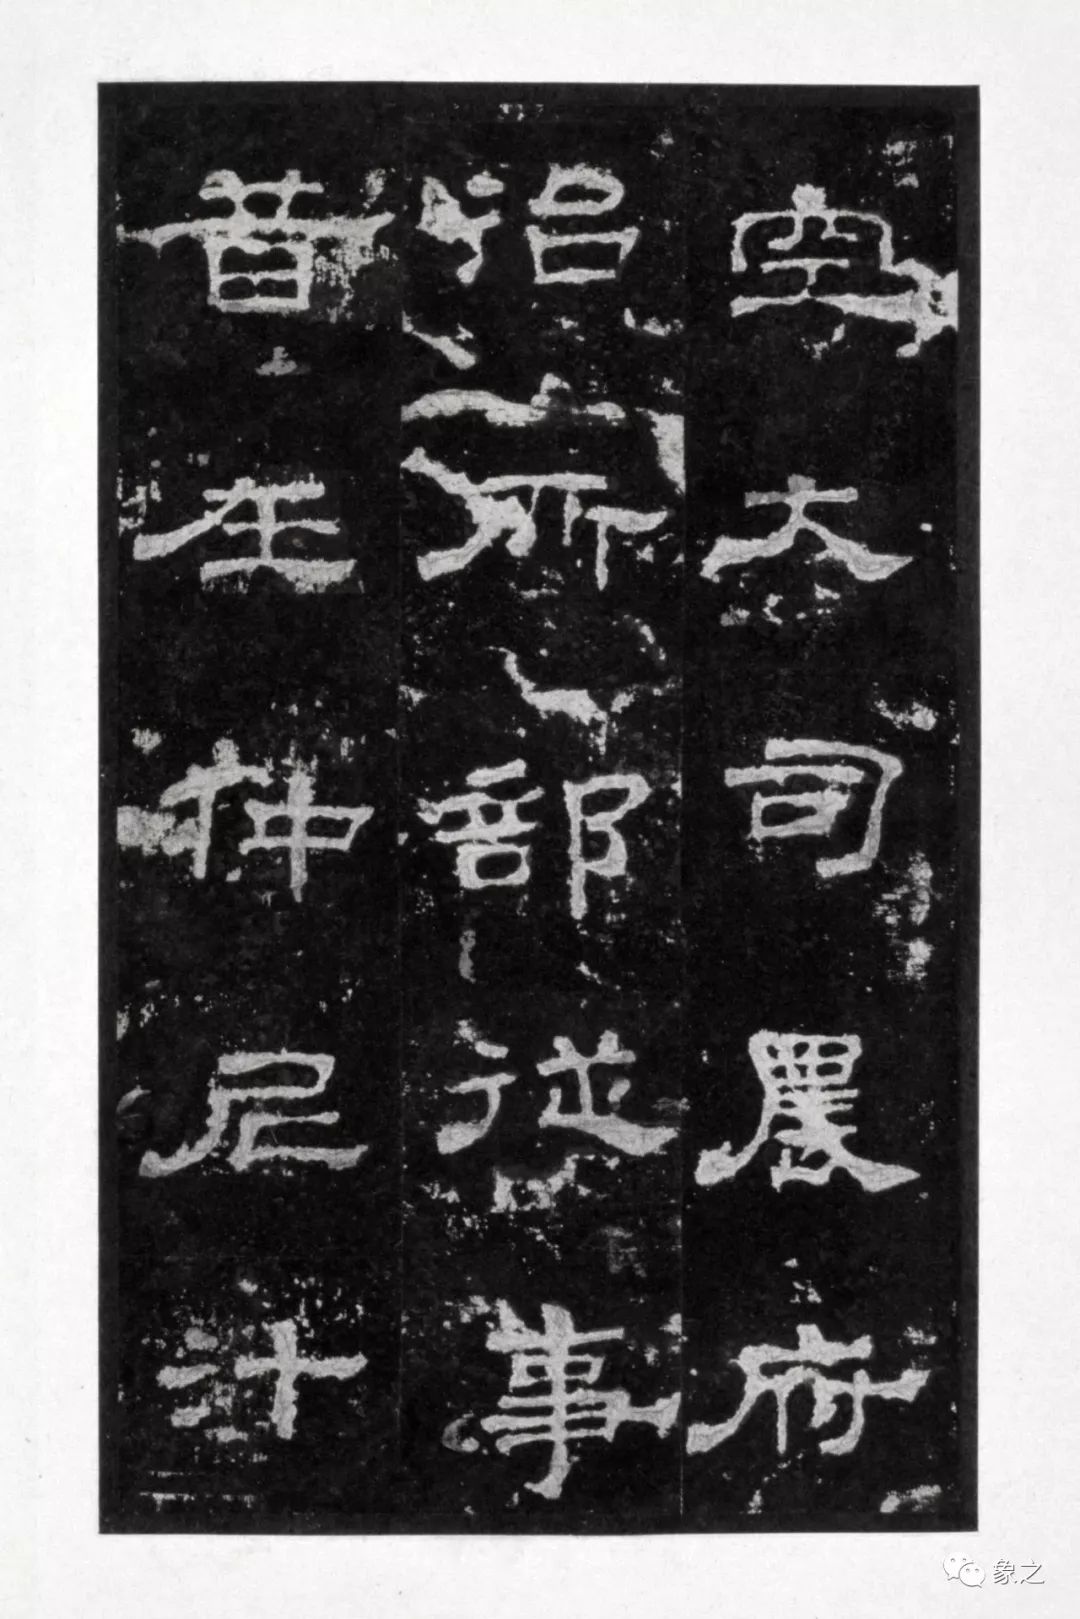 空大司農府
治所部從事
昔在仲尼汁
象之